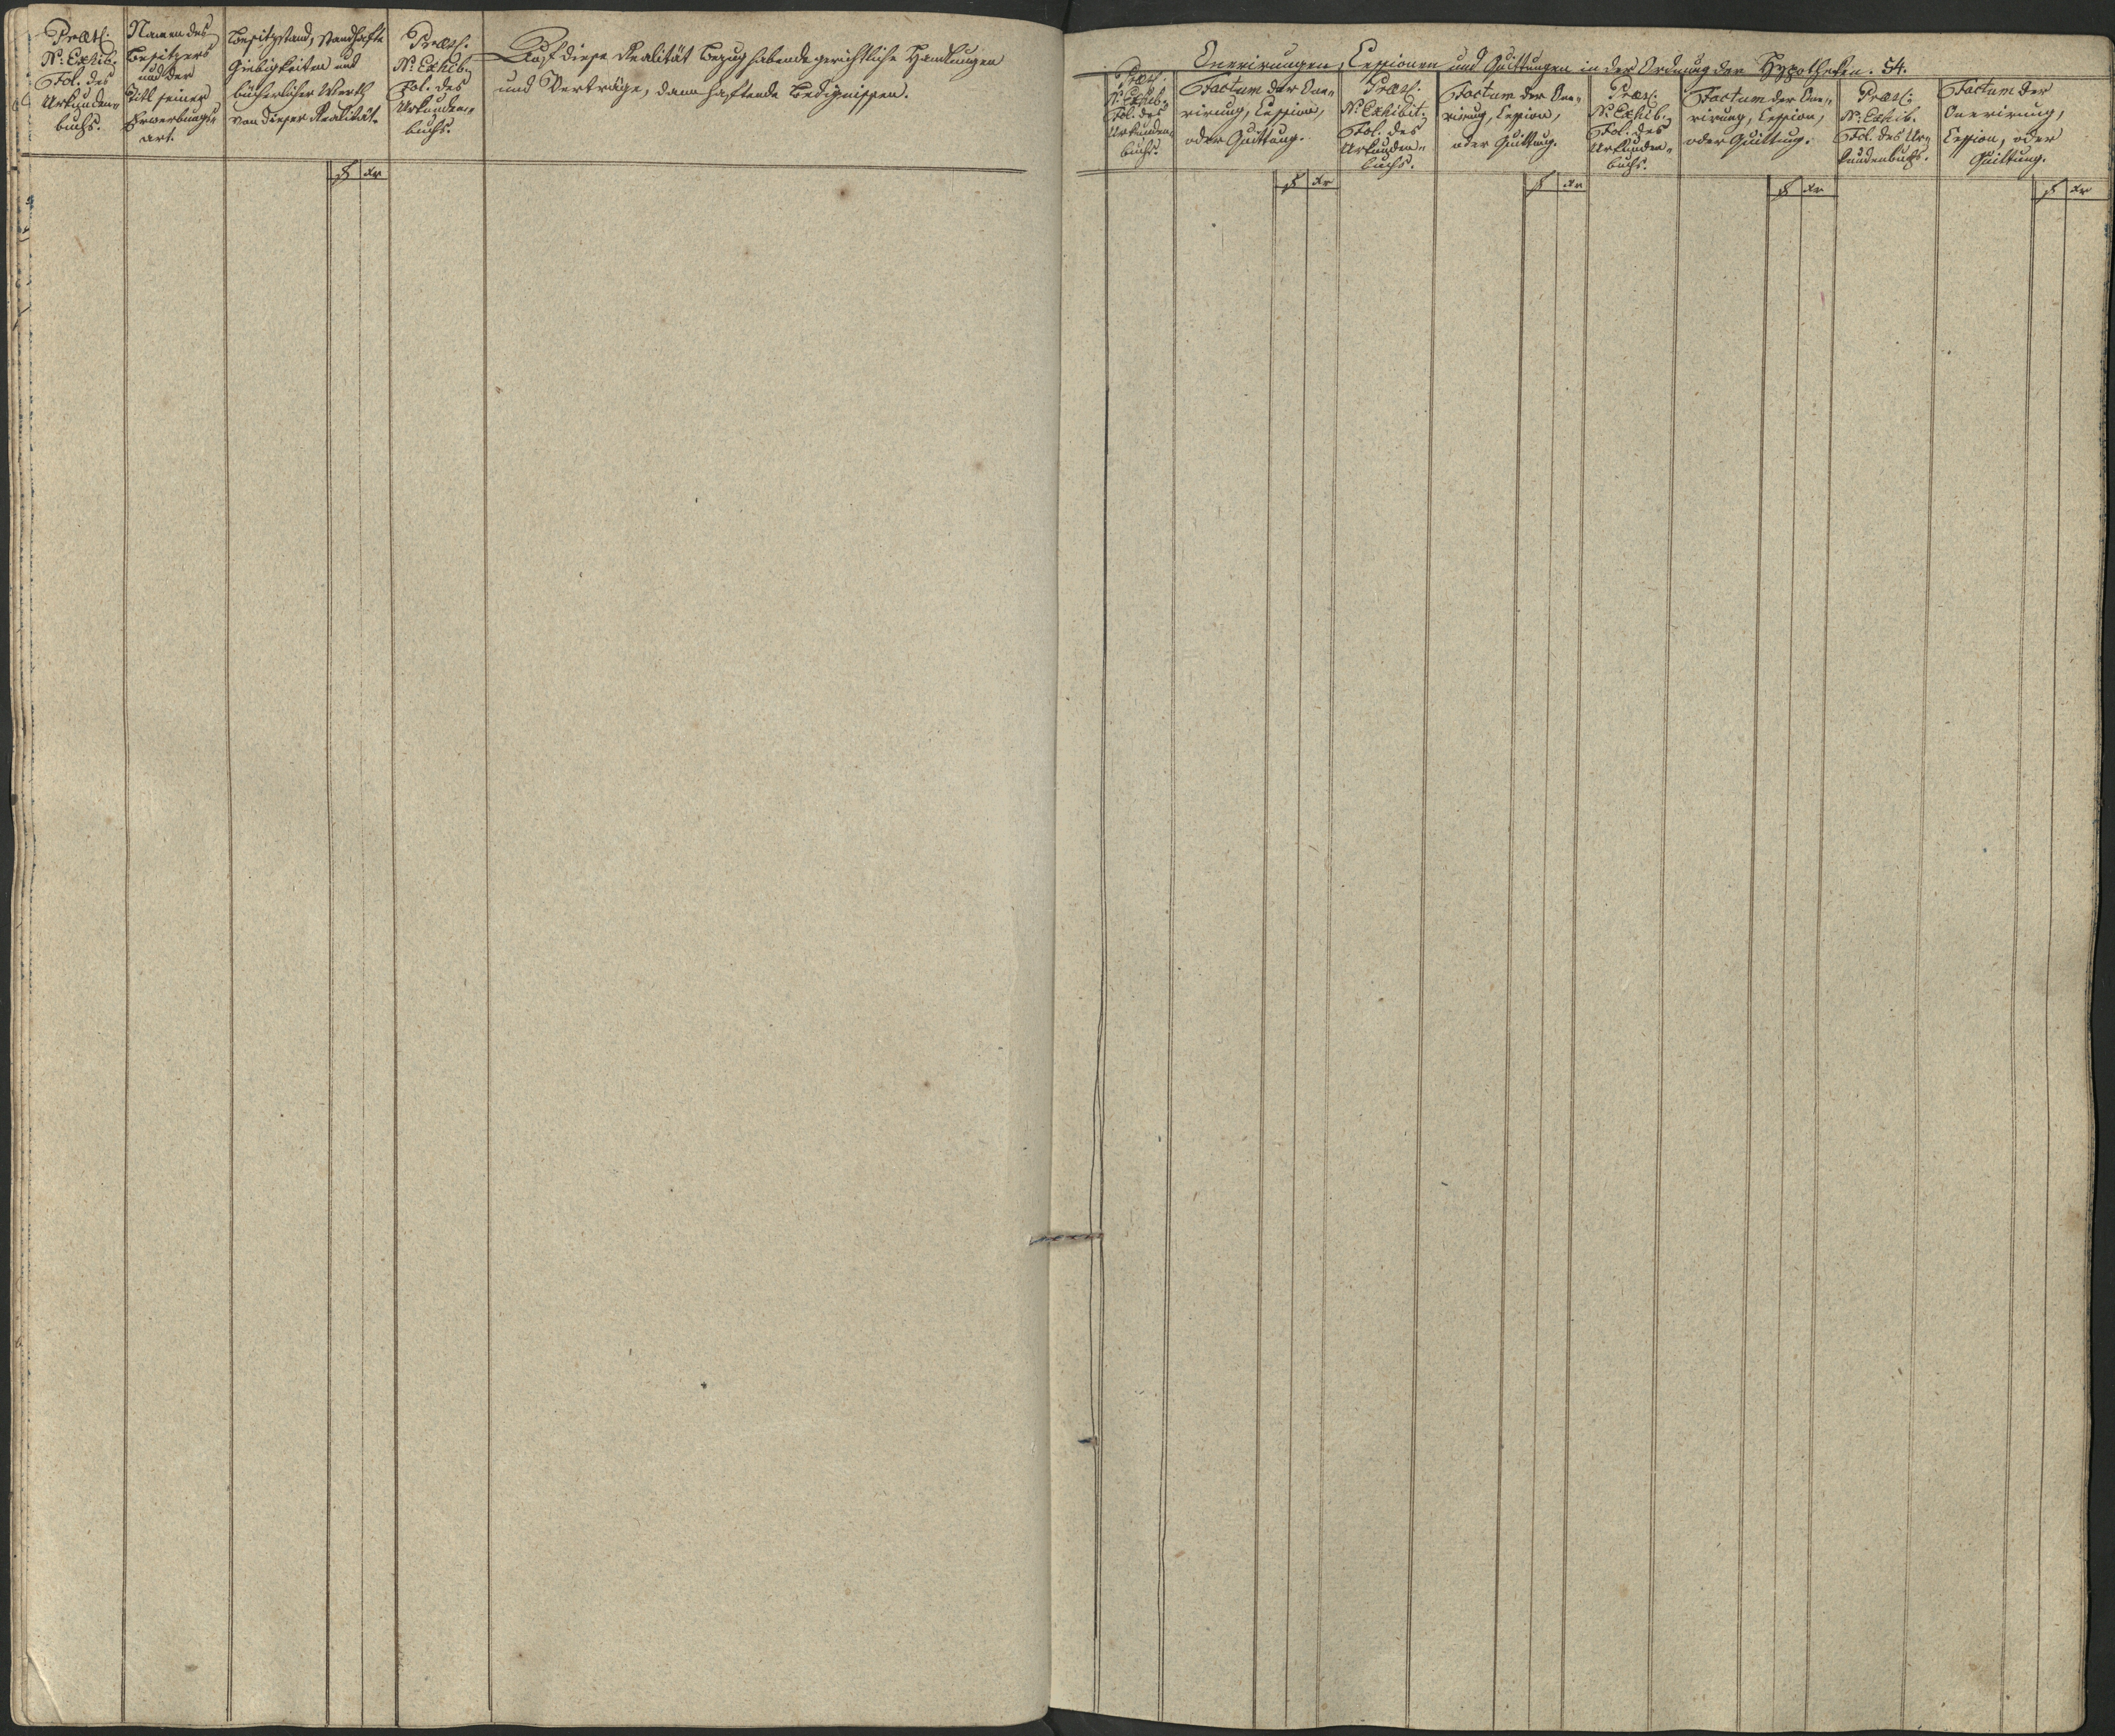 Præs:
N: Exhib.
Fol. des
Urkunden-
buchs.
Namen des
Besitzers
und der
Titl seiner
Erwerbungs-
art.
Besitzstand, standhafte
Giebigkeiten und
bücherlicher Werth
von dieser Realität.
f xr
Præs:
N: Exhib.
Fol. des
Urkunden-
buchs.
Auf diese Realität Bezug habende gerichtliche Handlungen
und Verträge, dann haftende Bedignissen.
Onerirungen, Cessionen und Quittungen in der Ordnung der Hypotheken. 54.
Præs:
N: Exhib.
Fol. des
Urkunden-
buchs.
Factum der One-
rirung, Cession,
oder Quittung.
f xr
Præs:
N: Exhibit.
Fol. des
Urkunden-
buchs.
Factum der One-
rirung, Cession,
oder Quittung.
f xr
Præs:
N: Exhib.
Fol. des
Urkunden-
buchs.
Factum der One-
rirung, Cession,
oder Quittung.
f xr
Præs:
N: Exhib.
Fol. des Ur-
kundenbuchs.
Factum der
Onerirung,
Cession, oder
Quittung.
f xr